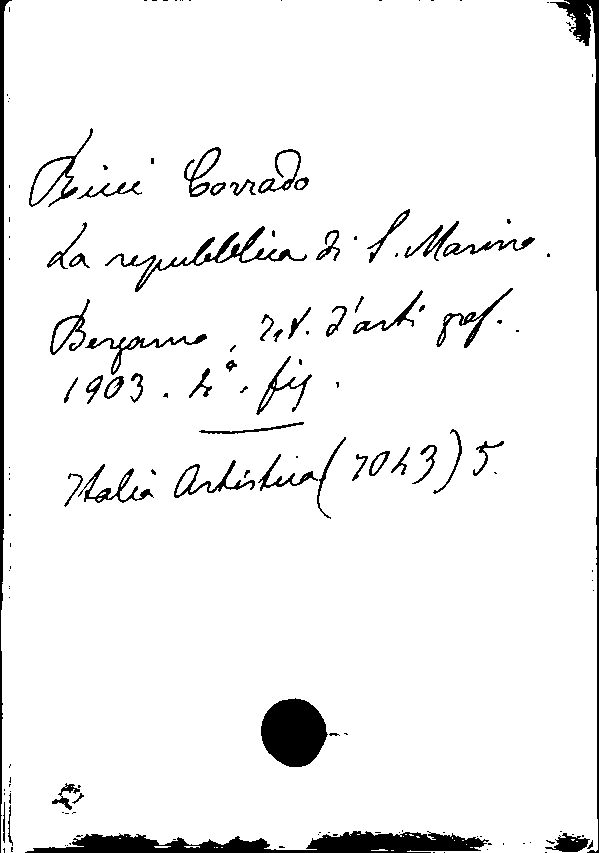 Ricci Corrado
La repubblica di S. Marino.
Bergamo, Ist. d'arti graf.
1903. 4°. fig.
Italia Artistica (7043) 5.